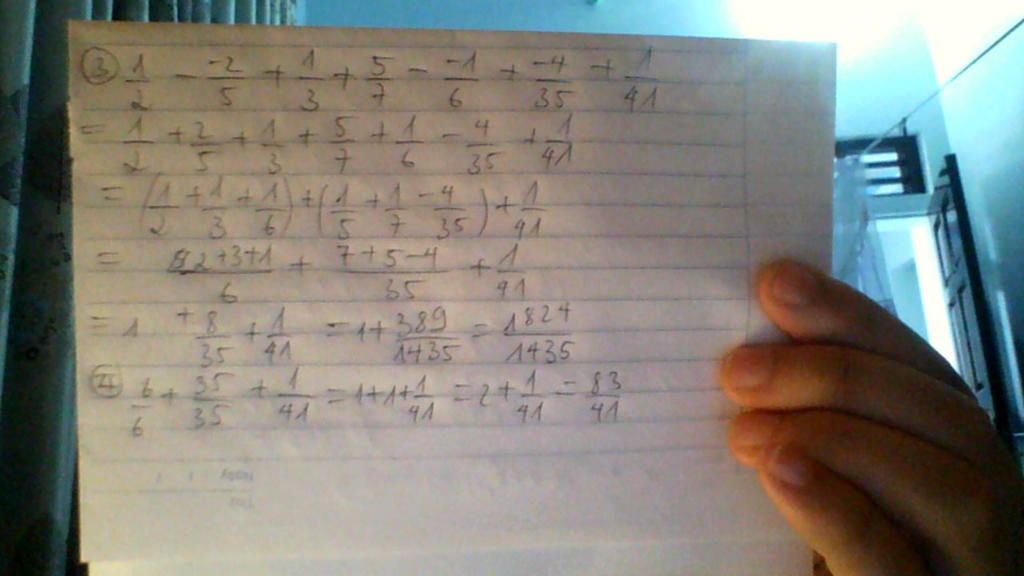 ③ 1/2 - -2/5 + 1/3 + 5/7 - -1/6 + -4/35 + 1/41
= 1/2 + 2/5 + 1/3 + 5/7 + 1/6 - 4/35 + 1/41
= (1/2 + 1/3 + 1/6) + (1/5 + 1/7 - 4/35) + 1/41
= 2+3+1/6 + 7+5-4/35 + 1/41
= 1 + 8/35 + 1/41 = 1 + 389/1435 = 1824/1435
④ 6/6 + 35/35 + 1/41 = 1+1+1/41 = 2 + 1/41 = 83/41